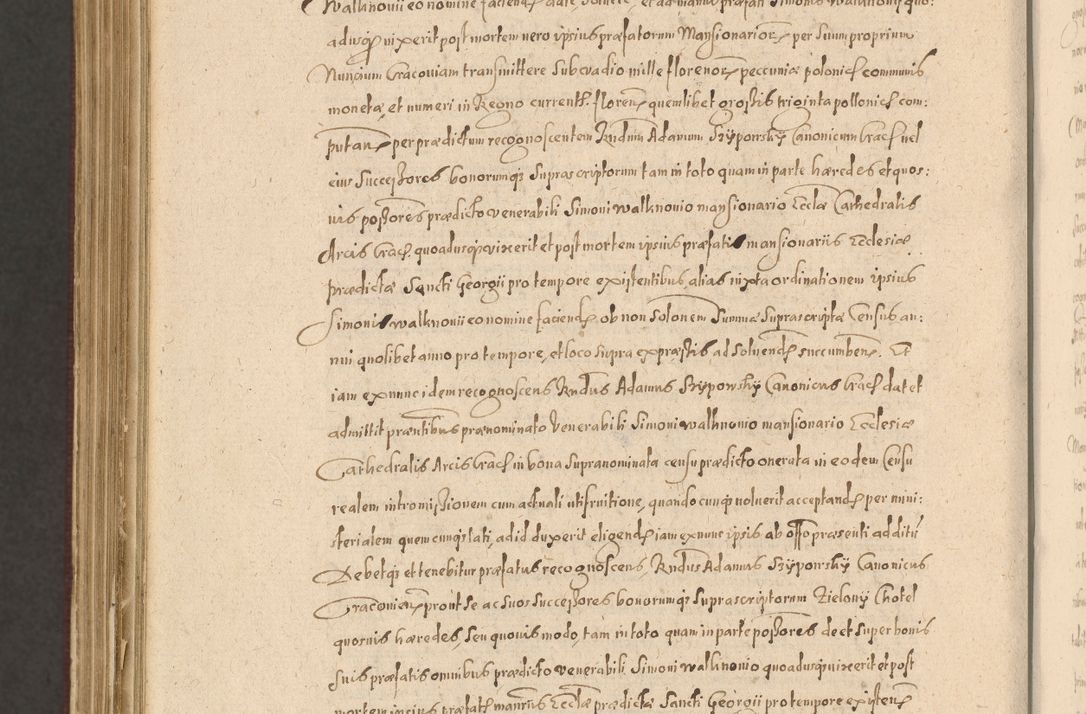 Walknouii eo nomine faciend. dare, soluere, et ad manus præfati Simonis Walknouii quo:
adusq3 uixerit post mortem uero ipsius præfatorum Mansionarior. per suum proprium
Nuncium Cracouiam transmittere sub uadio mille florenor. peccuniæ polonic. communis
monetæ, et numeri in Regno currentis. floren. quemlibet grossis triginta pollonic. com:
putan. per prædictum recognoscentem Rndum Adamum Szÿporskÿ Canonicum Crac. uel
eius Successores bonorumq3 supra scriptorum tam in toto quam in parte hæredes et quos:
uis possores prædicto venerabili Simoni walknouio mansionario Ecclæ Cathedralis
Arcis Crac. quoadusq3 vixerit et post mortem ipsius præfatis mansionariis Ecclesiæ
prædictæ Sancti Georgii pro tempore existentibus, alias iuxta ordinationem ipsius
Simonis walknouii eo nomine faciend. ob non solonem summæ suprascriptæ Census an:
nui quolibet anno pro tempore, et loco supra expræssis ad soluend. succumben. Et
iam ex nunc idem recognoscens Rndus Adamus Szÿpowskÿ Canonicus Crac. dat et
admittit præntibus prænominato Venerabili Simoni walknouio mansionario Ecclesiæ
Cathedralis Arcis Crac. in bona supranominata censu prædicto onerata in eodem Censu
realem intromissionem cum actuali utifruitione, quandocunq3 uoluerit acceptand. per mini:
sterialem quemcunq3 lati, ad id duxerit eligend. iam ex nunc ipsis ab offo præsenti additu
Debetq3 et tenebitur præfatus recognoscens, Rndus Adamus Szÿporskÿ Canonicus
Cracouien. prout se ac suos successores bonorumq3 suprascriptorum Zielonÿ Chotel
quosuis hæredes, seu quouis modo, tam in toto quam in parte possores de et super bonis
suis præfatis omnibus prædicto venerabili Simoni walknouio quoadusq3 uixerit et post
mortem ipsius præfat. manrius Ecclæ prædictæ Sancti Georgii pro tempore existen.